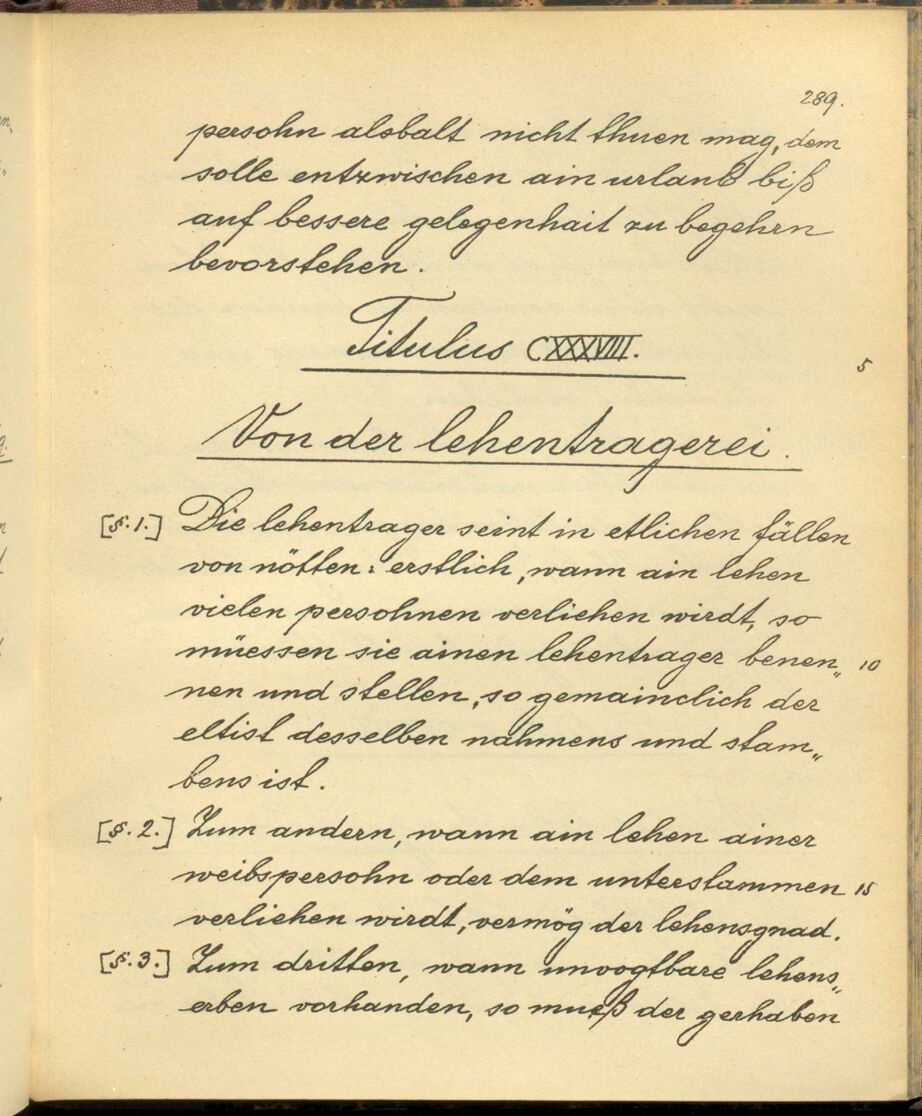 289.
persohn alsbalt nicht thuen mag, dem
solle entzwischen ain urlaub biß
auf bessere gelegenhait zu begehrn
bevorstehen.
Titulus CXXXVIII.
5
Von der lehentragerei.
[§. 1.] Die lehentrager seint in etlichen fällen
von nötten: erstlich, wann ain lehen
vielen persohnen verliehen wirdt, so
müessen sie ainen lehentrager benen„ 10
nen und stellen, so gemainclich der
eltist desselben nahmens und stam„
bens ist.
[§. 2.] Zum andern, wann ain lehen ainer
weibspersohn oder dem unterstammen 15
verliehen wirdt, vermög der lehensgnad.
[§. 3.] Zum dritten, wann unvogtbare lehens„
erben vorhanden, so mueß der gerhaben